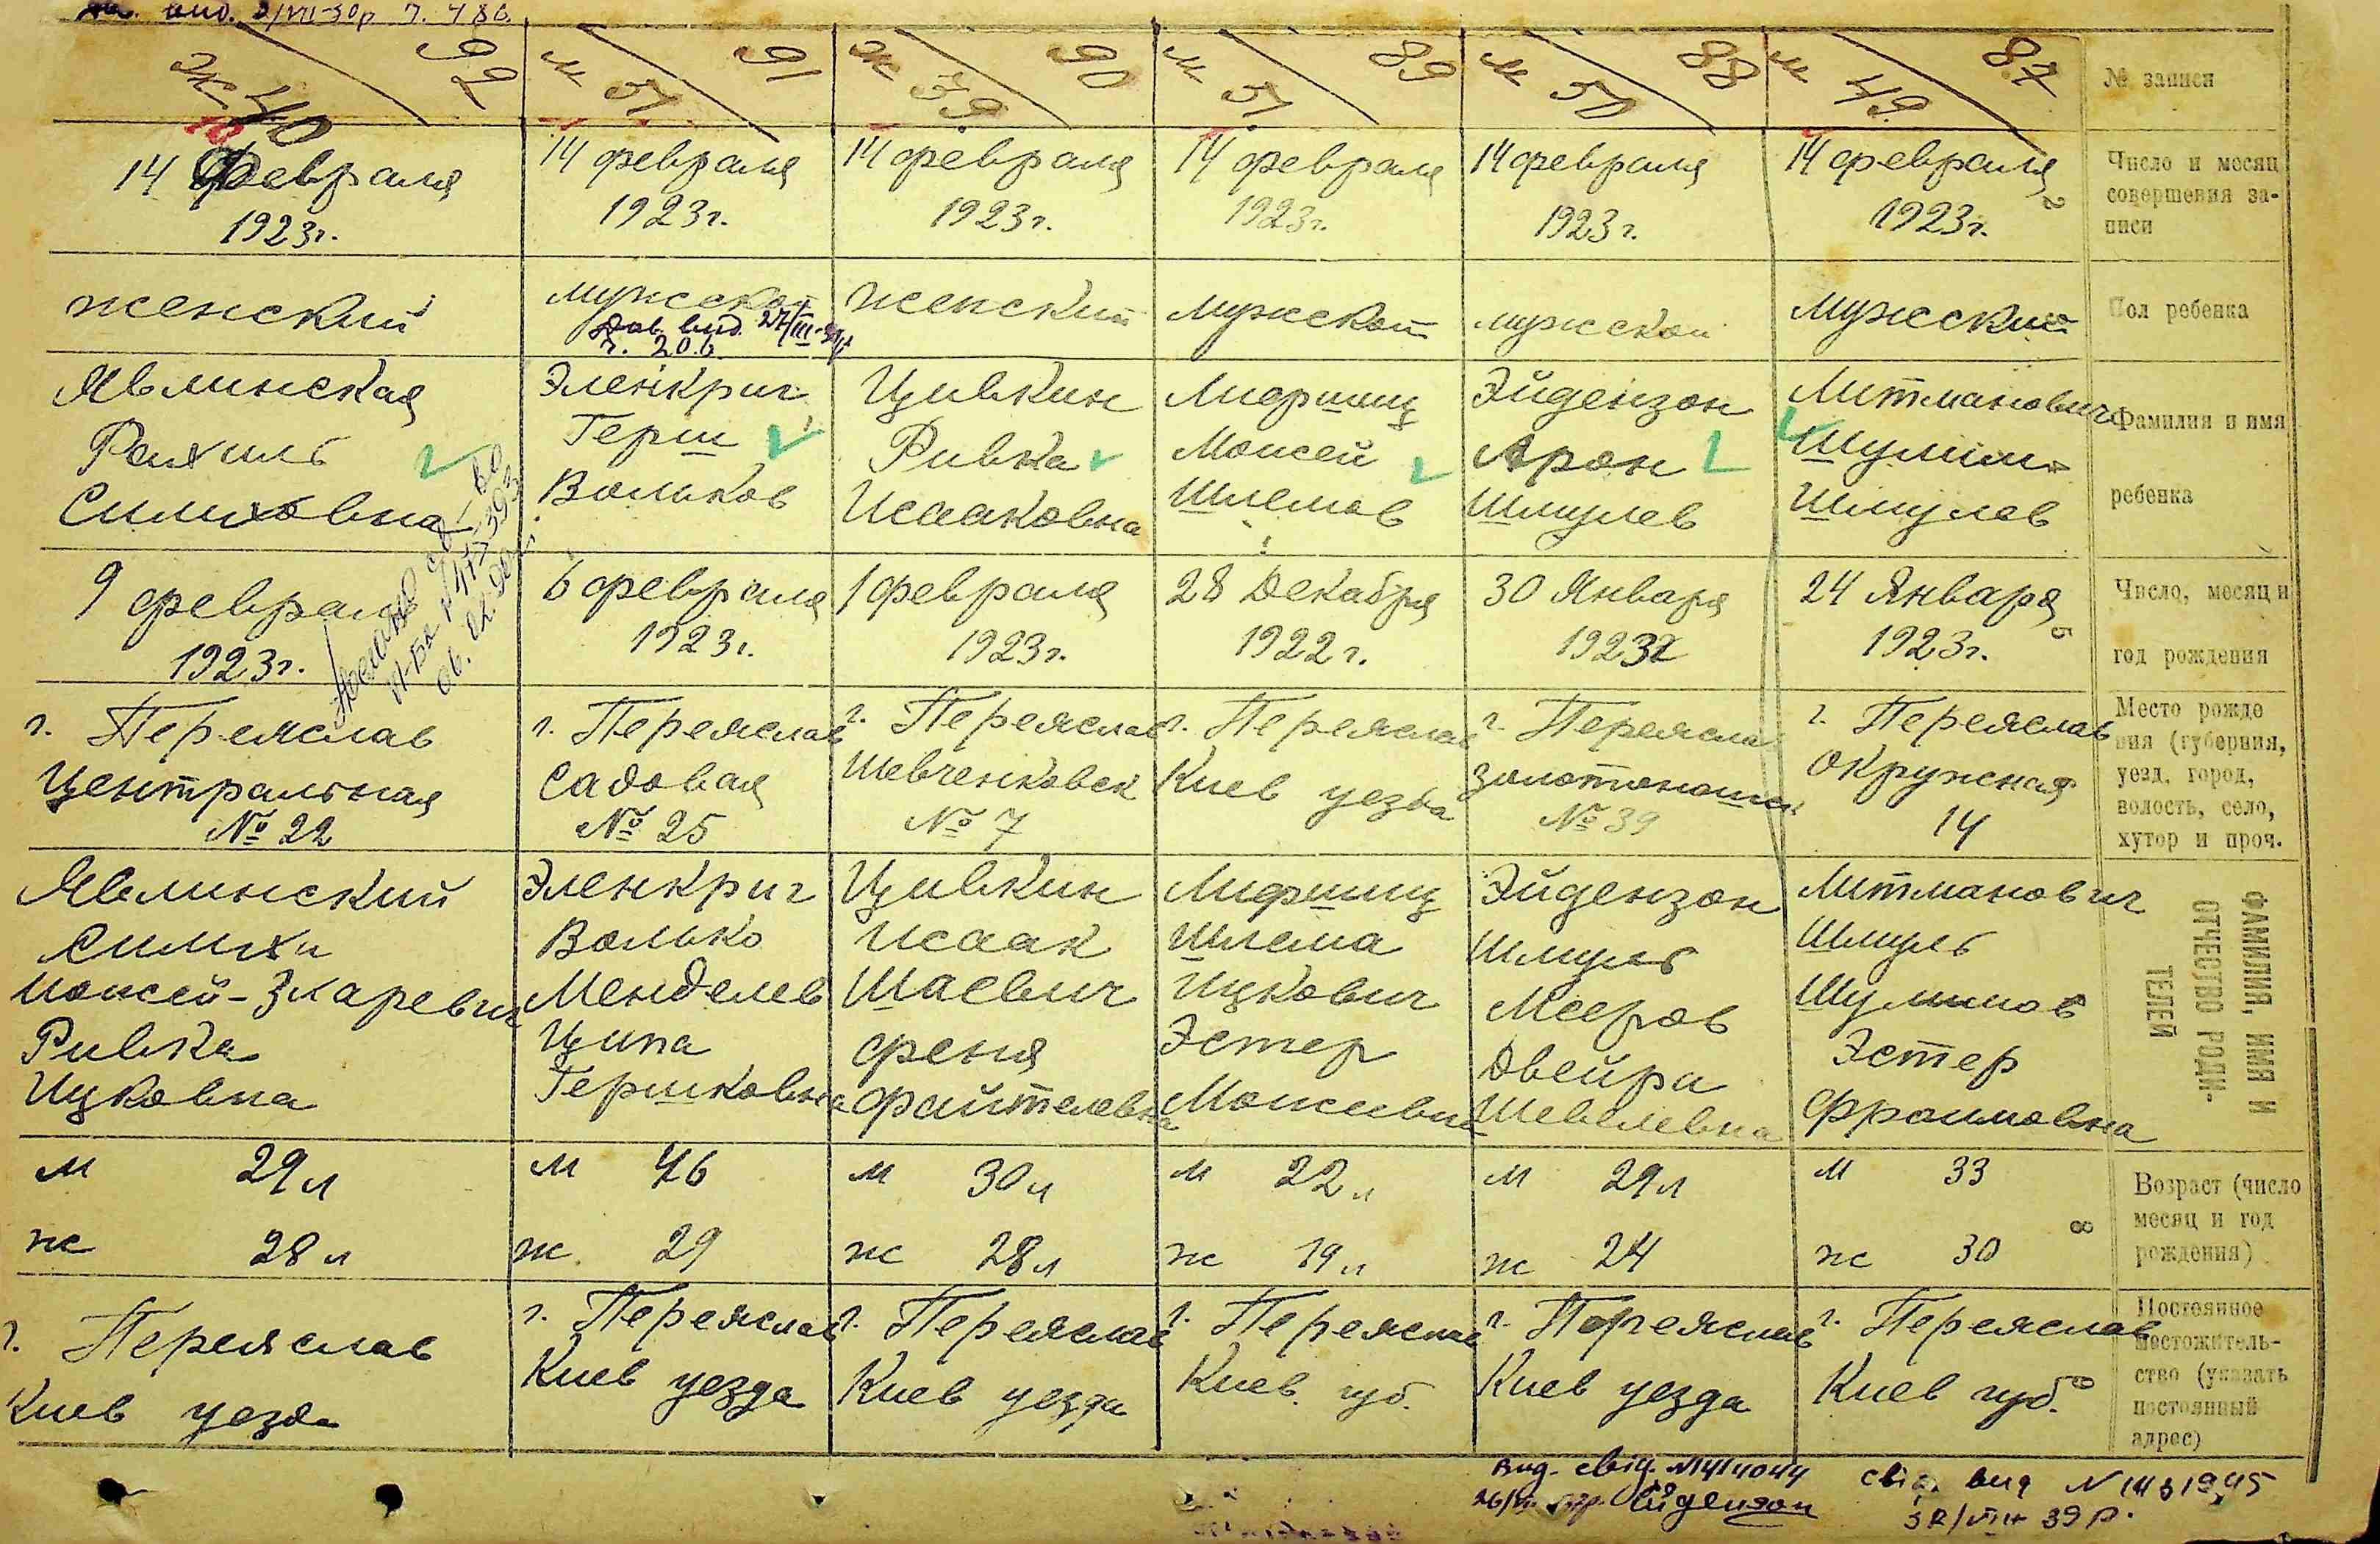 92
Ж 40
91
М
90
Ж 39
89
М 51
88
М 50
87
М 49
№ записи
14 февраля
1923г.
14 февраля
1923г.
14 февраля
1923г.
14 февраля
1923г.
14 февраля
1923г.
14 февраля
1923г.
Число и месяц
совершения за-
писи
женский
мужской
женский
мужской
мужской
мужский
Пол ребенка
Явлинская
Рахиль
Симховна
Эленкриг
Герш
Вольков
Цивкин
Ривка
Исааковна
Лифшиц
Моисей
Шлемов
Эйдензон
Арон
Шмулев
Литманович
Шулим
Шмулов
Фамилия и имя
ребенка
9 февраля
1923г.
6 февраля
1923г.
1 февраля
1923г.
28 Декабря
1922г.
30 Января
1923
24 Января
1923г.
Число, месяц и
год рождения
г. Переяслав
Центральная
№ 22
г. Переяслав
Садовая
№ 25
г. Переяслав
Шевченковск
№ 7
г. Переяслав
Киев уезда
г. Переяслав
Золотоношск
№ 39
г. Переяслав
Окружная
14
Место рожде
ния (губерния,
уезд, город,
волость, село,
хутор и проч.
Явлинский
Симхи
Ривка
Ицковна
Эленкриг
Волько
Менделев
Ципа
Гершковна
Цивкин
Исаак
Шаевич
Феня
Файтелевна
Лифшиц
Шлема
Ицкович
Эстер
Моисеевна
Эйдензон
Шмуль
Мееров
Двейра
Шевелевна
Литманович
Шмуль
Шулимов
Эстер
Фроимовна
ФАМИЛИЯ, ИМЯ И
ОТЧЕСТВО РОДИ-
ТЕЛЕЙ
м 29 л
ж 28 л
м 46
ж 29
м 30 л
ж 28 л
м 22 л
ж 19 л
м 29 л
ж 24
м 33
ж 30
8
Возраст (число
месяц и год
рождения)
г. Переяслав
Киев уезда
г. Переяслав
Киев уезда
г. Переяслав
Киев уезда
г. Переяслав
Киев. губ.
г. Переяслав
Киев уезда
г. Переяслав
Киев губ.
Постоянное
местожитель-
ство (указать
постоянный
адрес)